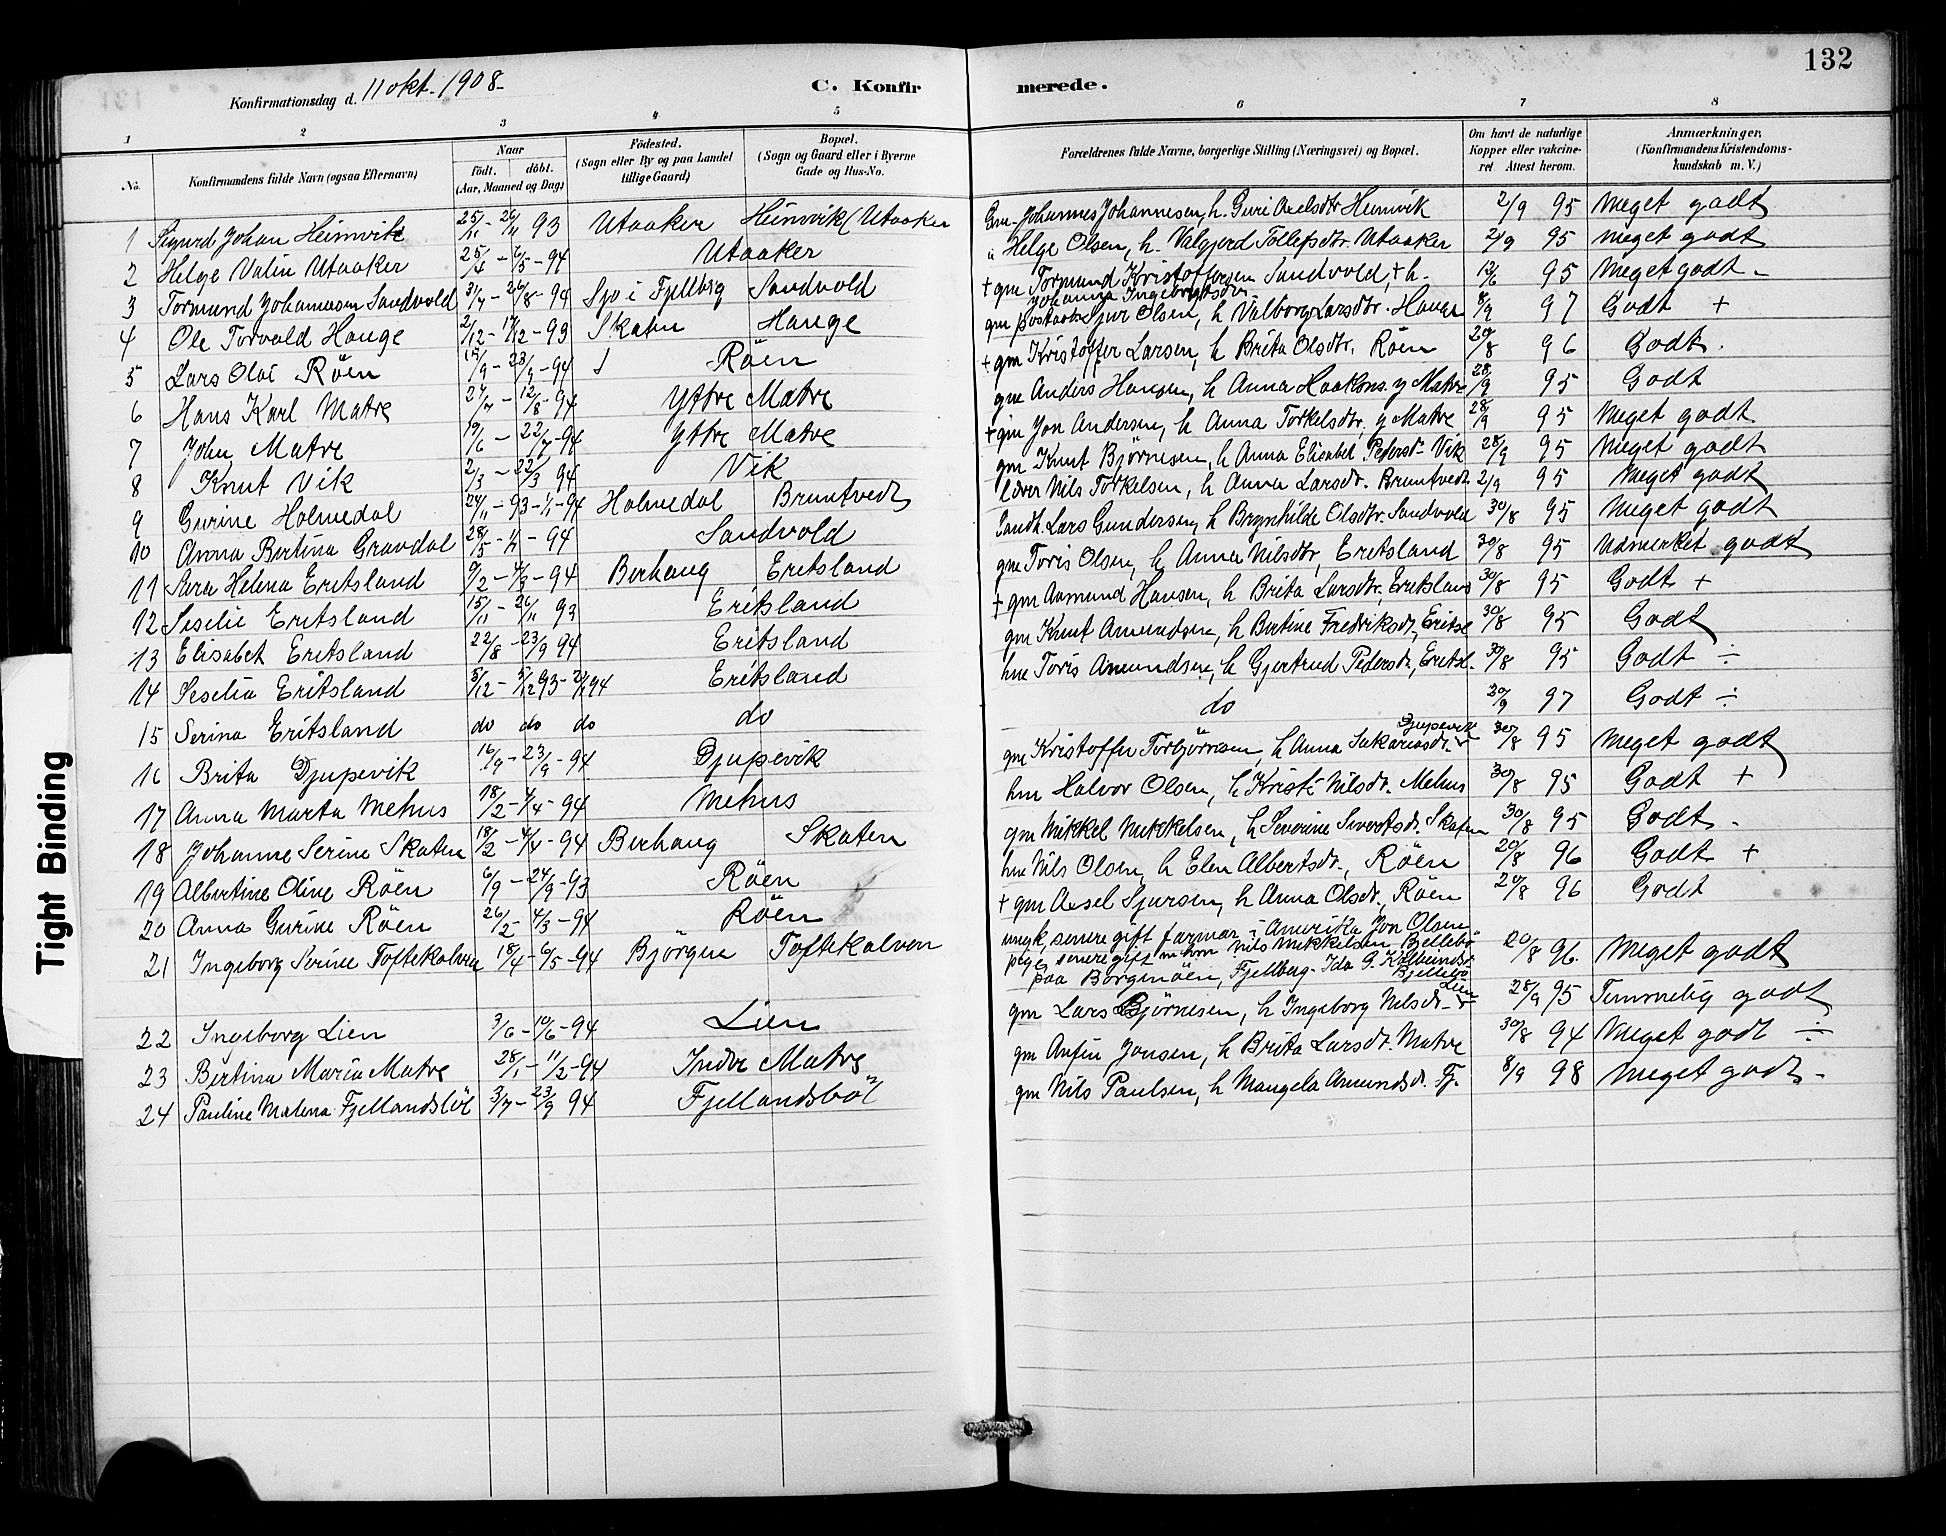 132
Konfirmationsdag d. 11 okt. 1908.
C. Konfirmerede.
1 2 3 4 5 6 7 8
No.
Konfirmandens fulde Navn (ogsaa Efternavn)
Naar
födt. döbt.
(Aar, Maaned og Dag)
Födested.
(Sogn eller By og paa Landet tillige Gaard)
Bopæl.
(Sogn og Gaard eller i Byerne Gade og Hus-No.
Forældrenes fulde Navne, borgerlige Stilling (Næringsvei) og Bopæl.
Om havt de naturlige Kopper eller vakcineret Attest herom.
Anmærkninger.
(Konfirmandens Kristendomskundskab m. V.)
1 Sigurd Johan Heimvik 25/11 - 26/11 93 Utaaker Heimvik (Utaaker Gm. Johannes Johannesen, h. Guri Axelsdtr Heimvik 2/9 95 Meget godt
2 Helge Valin Utaaker 25/4 - 6/5 - 94 Utaaker " Helge Olsen, h. Valgjerd Tollefsdtr. Utaaker 2/9 95 Meget godt
3 Tormund Johannesen Sandvold 31/7 - 26/8 - 94 Sjo i Fjelberg Sandvold + gm Tormund Kristoffersen Sandvold, + h. Johanna Ingeborgsdtr 12/6 95 Meget godt -
4 Ole Torvald Hauge 2/12 - 17/12 - 93 Skaten Hauge gm Sjur Olsen, h Valborg Larsdtr. Hauge 8/9 97 Godt +
5 Lars Olai Röen 15/9 - 23/9 - 94 Röen + gm Kristoffer Larsen, h Brita Olsdtr. Röen 20/8 96 Godt.
6 Hans Karl Matre 27/7 - 12/8 - 94 Yttre Matre gm Anders Hansen, h Anna Haakons. y Matre 28/9 95 Godt
7 John Matre 19/6 - 22/7 - 94 Yttre Matre + gm Jon Andersen, h Anna Torkelsdtr, y Matre 28/9 95 Meget godt
8 Knut Vik 2/3 - 22/3 94 Vik gm Knut Björnesen, h Anna Elisabet Pedersd. Vik 28/9 95 Meget godt
9 Gurine Holmedal 24/11 - 93 - 1/1 - 94 Holmedal Bruntvedt lærer Nils Torkelsen, h Anna Larsdr. Bruntvedt 2/9 95 Meget godt
10 Anna Bertina Gravdal 28/5 - 94 Sandvold Landh. Lars Gundersen, h Brynhilde Olsdtr. Sandvold 30/8 95 Meget godt
11 Sara Helena Eritsland 9/2 - 4/3 - 94 Berhaug Eritsland gm Toris Olsen, h Anna Nilsdtr, Eritsland 30/8 95 Udmerket godt
12 Seselie Eritsland 15/11 - 26/11 93 Eritsland + gm Aamund Hansen, h Brita Larsdtr, Eritsland 30/8 95 Godt +
13 Elisabet Eritsland 22/8 - 23/9 94 Eritsland gm Knut Amundsen, h Bertine Fredriksdt, Eritsl 30/8 95 Godt
14 Seselia Eritsland 5/12 - 5/12 93 - 2/1 94 Eritsland hm Toris Amundsen, h Gjertrud Pedersdr, Eritsl. 30/8 95 Godt ÷
15 Serina Eritsland do do do do do 30/9 97 Godt ÷
16 Brita Djupevik 16/9 - 23/9 - 94 Djupevik gm Kristoffer Torbjörnsen, h Anna Sakariasdr. Djupevik 30/8 95 Meget godt
17 Anna Marta Mehus 18/2 - 4/4 - 94 Mehus hm Halvor Olsen, h Kristi Nilsdr. Mehus 30/8 95 Godt +
18 Johanne Serine Skaten 18/2 - 4/4 - 94 Berhaug Skaten gm Mikkel Mikkelsen, h Severine Sivertsdr. Skaten 30/8 95 Godt -
19 Albertine Oline Röen 6/9 - 24/9 - 93 Röen hm Nils Olsen, h Elen Albertsdr., Röen 20/8 96 Godt +
20 Anna Gurine Röen 26/2 - 4/3 - 94 Röen + gm Axel Sjursen, h Anna Olsdr., Röen 20/8 96 Godt
21 Ingeborg Serine Toftekalven 18/4 - 6/5 - 94 Björgen Toftekalven ungk, senere gift farmar i Amerika Jon Olsen
pige, senere gift m Nils Mikkelsen Bjellebö
paa Borgenöen, Fjelberg - Ida G. Bjellebö 20/8 96. Meget godt
22 Ingeborg Lien 3/6 - 10/6 - 94 Lien gm Lars Björnesen, h Ingeborg Nilsdr - Lien 28/9 95 Temmelig godt
23 Bertina Maria Matre 28/1 - 11/2 - 94 Indre Matre gm Anfin Jonsen, h Brita Larsdr. Matre 30/8 94 Meget godt ÷
24 Pauline Malena Fjellandsböl 3/7 - 23/9 94 Fjellandsböl gm Nils Paulsen, h Mangela Amundsd. Fj. 8/9 98 Meget godt -
Tight Binding